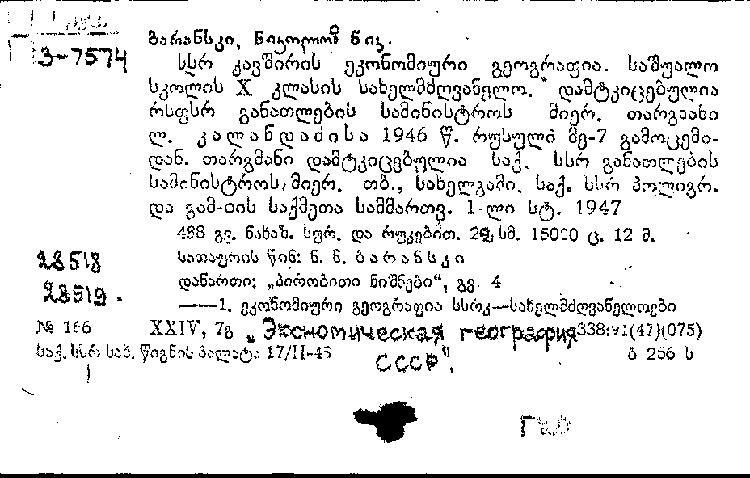 3-7574
ბარანსკი, ნიკოლოზ ნიკ.
სსრ კავშირის ეკონომიური გეოგრაფია. საშუალო
სკოლის X კლასის სახელმძღვანელო. დამტკიცებულია
რსფსრ განათლების სამინისტროს მიერ. თარგმანი
ლ. კალანდაძისა 1946 წ. რუსული მე-7 გამოცემი-
დან. თარგმანი დამტკიცებულია საქ. სსრ განათლების
სამინისტროს მიერ. თბ., სახელგამი, საქ. სსრ პოლიგრ.
და გამ-ობის საქმეთა სამმართვ. 1-ლი სტ. 1947
488 გვ. ნახაზ. სურ. და რუკებით. სმ. 15000 ც. 12 მ.
28518
სათაურის წინ: ნ. ნ. ბარანსკი
28519.
დანართი: „პირობითი ნიშნები“, გვ. 4
——1. ეკონომიური გეოგრაფია სსრკ—სახელმძღვანელოები
№ 166 XXIV, 7გ „Экономическая география 338:91(47)(075)
საქ. სსრ საწ. წიგნის პალატა 17/II-48 ბ 256 ს
СССР".